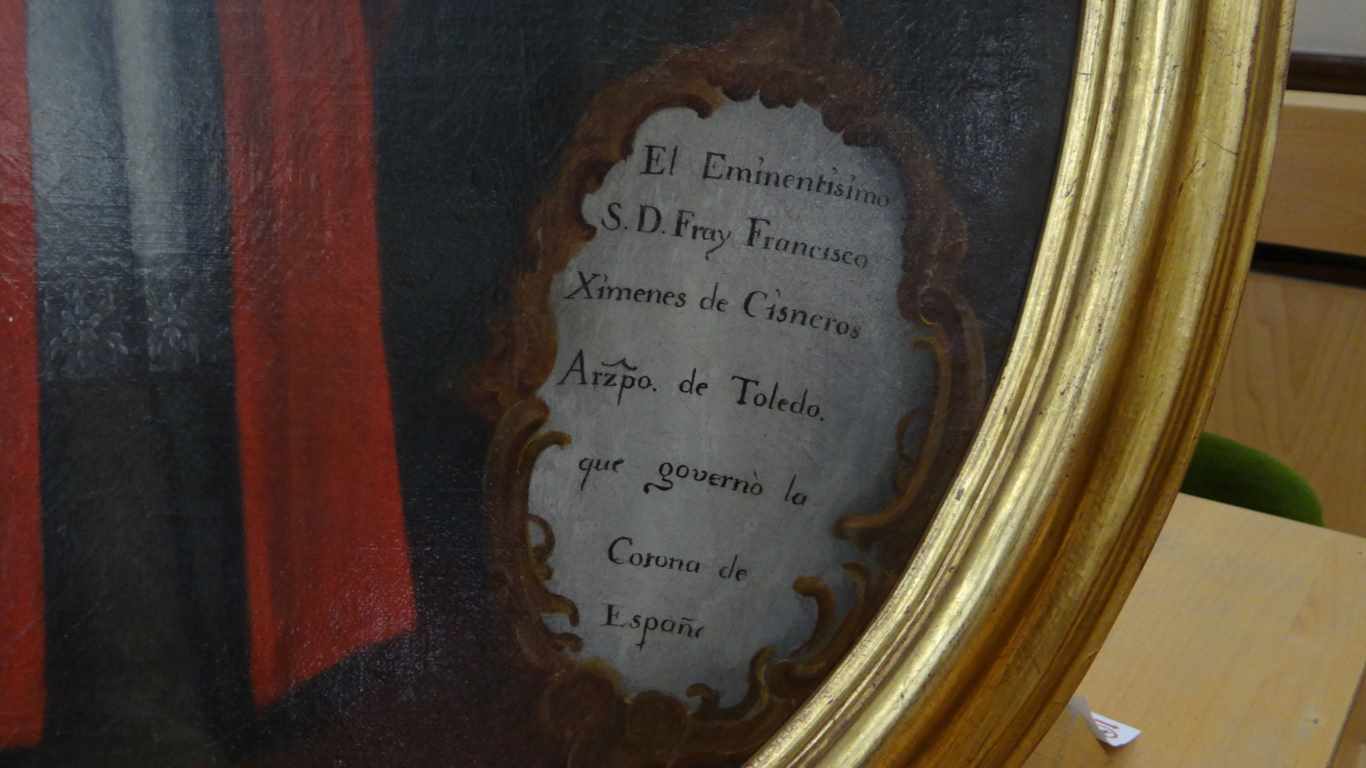 El Eminentisimo
S. D. Fray Francisco
Ximenes de Cisneros
Arzpo. de Toledo.
que governò la
Corona de
España